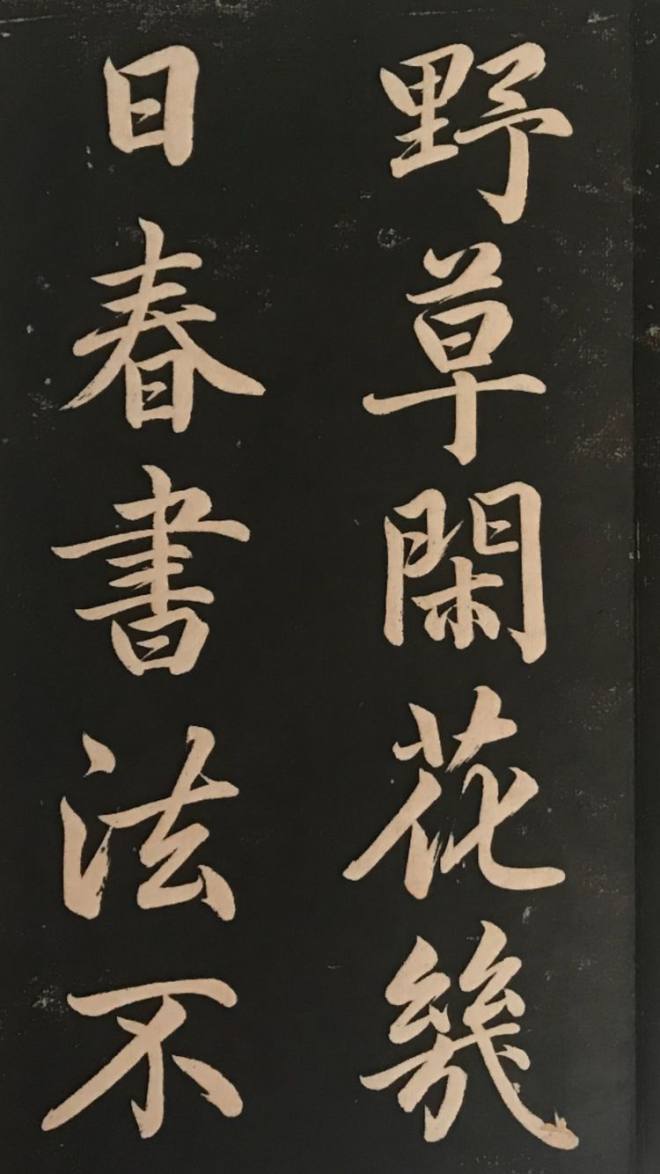 野草閑花幾
日春書法不